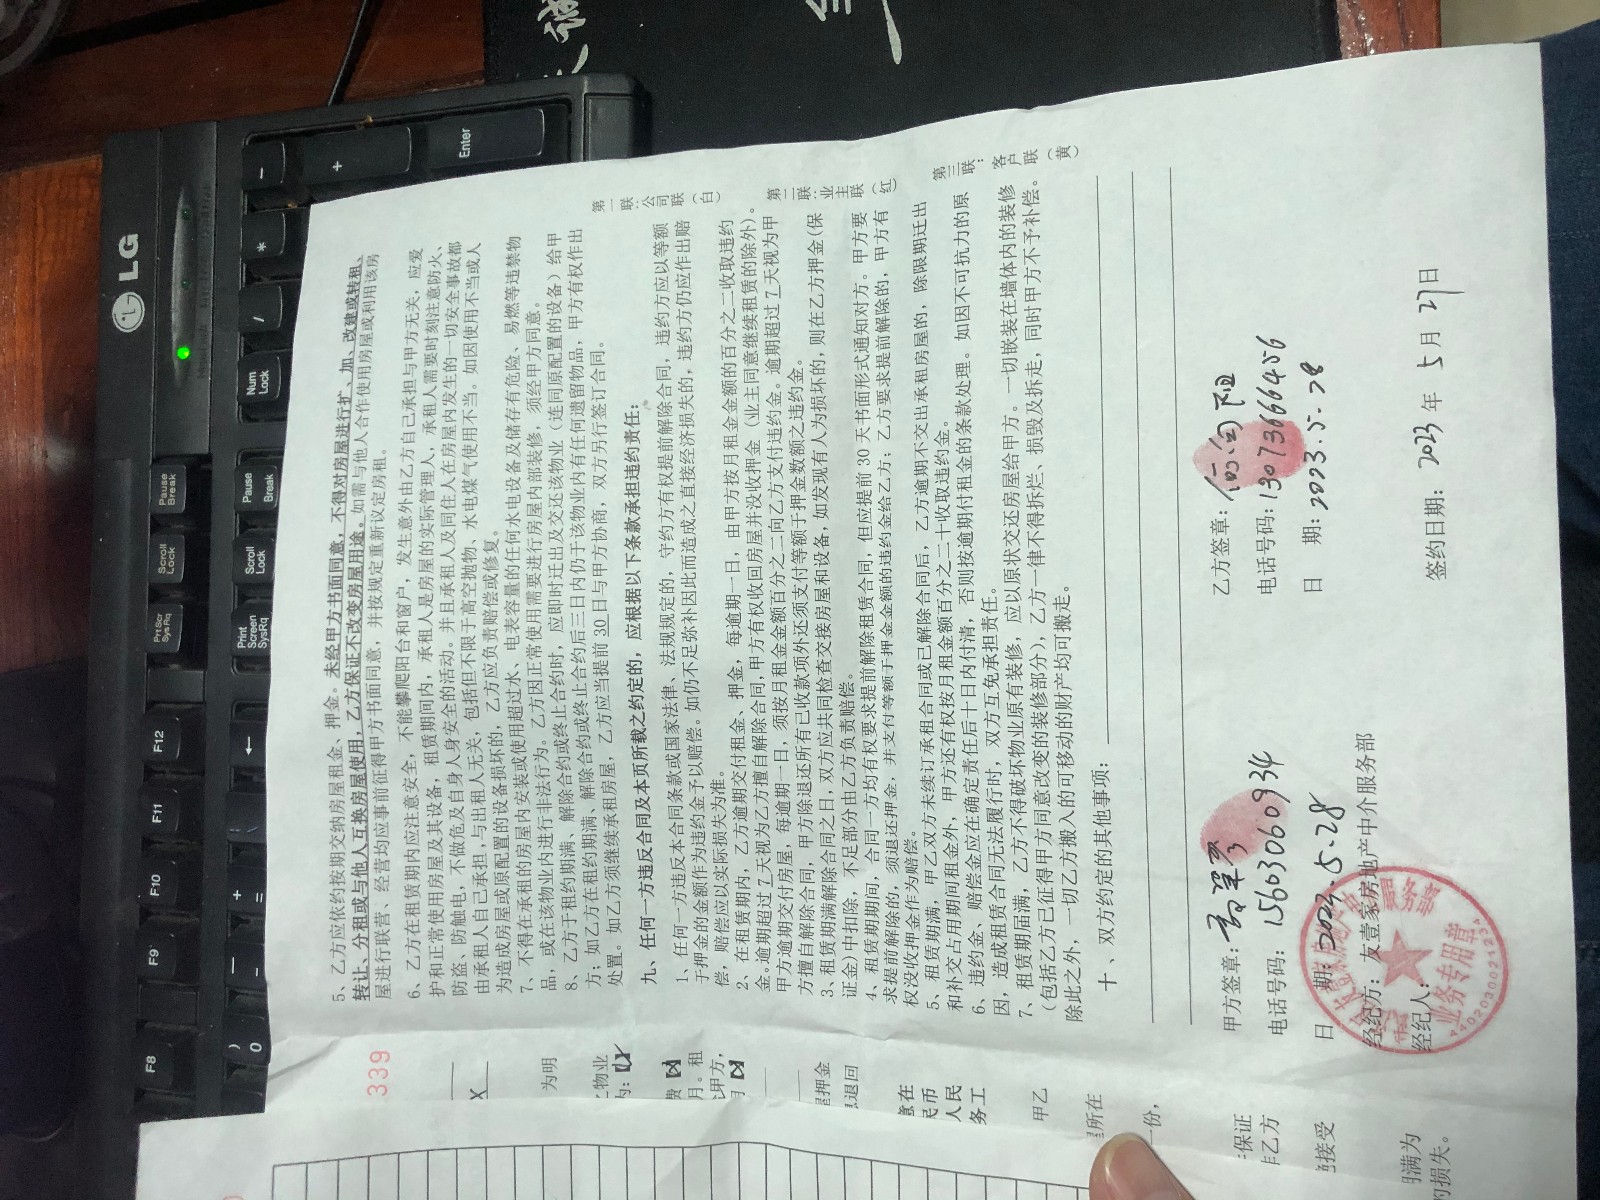 5、乙方应依约按期交纳房屋租金、押金。未经甲方书面同意，不得对房屋进行扩、加、改建或转租、
转让、分租或与他人互换房屋使用，乙方保证不改变房屋用途。如需与他人合作使用房屋或利用该房
屋进行联营、经营均应事前征得甲方书面同意，并按规定重新议定房租。
6、乙方在租赁期内应注意安全，不能攀爬阳台和窗户，发生意外由乙方自己承担与甲方无关，应爱
护和正常使用房屋及其设备，租赁期间内，承租人是房屋的实际管理人，承租人需要时刻注意防火、
防盗、防触电，不做危及自身人身安全的活动。并且承租人及同住人在房屋内发生的一切安全事故都
由承租人自己承担，与出租人无关，包括但不限于高空抛物、水电煤气使用不当。如因使用不当或人
为造成房屋或原配置的设备损坏的，乙方应负责赔偿或修复。
7、不得在承租的房屋内安装或使用超过水、电表容量的任何水电设备及储存有危险、易燃等违禁物
品，或在该物业内进行非法行为。乙方因正常使用需要进行房屋内部装修，须经甲方同意。
8、乙方于租约期满、解除合约或终止合约时，应即时迁出及交还该物业（连同原配置的设备）给甲
方；如乙方在租约期满、解除合约或终止合约后三日内仍于该物业内有任何遗留物品，甲方有权作出
处置。如乙方须继续承租房屋，乙方应当提前30日与甲方协商，双方另行签订合同。
九、任何一方违反合同及本页所载之约定的，应根据以下条款承担违约责任：
1、任何一方违反本合同条款或国家法律、法规规定的，守约方有权提前解除合同，违约方应以等额
于押金的金额作为违约金予以赔偿。如仍不足弥补因此而造成之直接经济损失的，违约方仍应作出赔
偿，赔偿应以实际损失为准。
2、在租赁期内，乙方逾期交付租金、押金，每逾期一日，由甲方按月租金金额的百分之二收取违约
金。逾期超过7天视为乙方擅自解除合同，甲方有权收回房屋并没收押金（业主同意继续租赁的除外）。
甲方逾期交付房屋，每逾期一日，须按月租金金额百分之二向乙方支付违约金。逾期超过7天视为甲
方擅自解除合同，甲方除退还所有已收款项外还须支付等额于押金数额之违约金。
3、租赁期满解除合同之日，双方应共同检查交接房屋和设备，如发现有人为损坏的，则在乙方押金(保
证金）中扣除，不足部分由乙方负责赔偿。
4、租赁期期间，合同一方均有权要求提前解除租赁合同，但应提前30天书面形式通知对方。甲方要
求提前解除的，须退还押金，并支付等额于押金金额的违约金给乙方；乙方要求提前解除的，甲方有
权没收押金作为赔偿。
5、租赁期满，甲乙双方未续订承租合同或已解除合同后，乙方逾期不交出承租房屋的，除限期迁出
和补交占用期间租金外，甲方还有权按月租金额百分之二十收取违约金。
6、违约金、赔偿金应在确定责任后十日内付清，否则按逾期付租金的条款处理。如因不可抗力的原
因，造成租赁合同无法履行时，双方互免承担责任。
7、租赁期届满，乙方不得破坏物业原有装修，应以原状交还房屋给甲方。一切嵌装在墙体内的装修
（包括乙方已征得甲方同意改变的装修部分），乙方一律不得拆烂、损毁及拆走，同时甲方不予补偿。
除此之外，一切乙方搬入的可移动的财产均可搬走。
十、双方约定的其他事项：
第一联：公司联（白）
第二联：业主联（红）
第三联：客户联（黄）
甲方签章：
电话号码：15603060934
日 期：2023.5.28
经纪方：友壹家房地产中介服务部
经纪人：
业务专用章
4402030021234
乙方签章：
电话号码：13073666456
日 期：2023.5.28
签约日期：2023 年 5 月 27 日
339
X
为明
物业
为：
费
月。租
甲方，
月
押金
退回
意在
民币
人民
务工
甲乙
所在
一份，
保证
乙方
接受
期满为
损失。
LG
Num Lock
/
*
-
+
Enter
Pause Break
Scroll Lock
Prt Scr SysRq
Pause Break
Scroll Lock
Print Screen SysRq
F12
F11
F10
F9
F8
←
+
=
)
0
诚